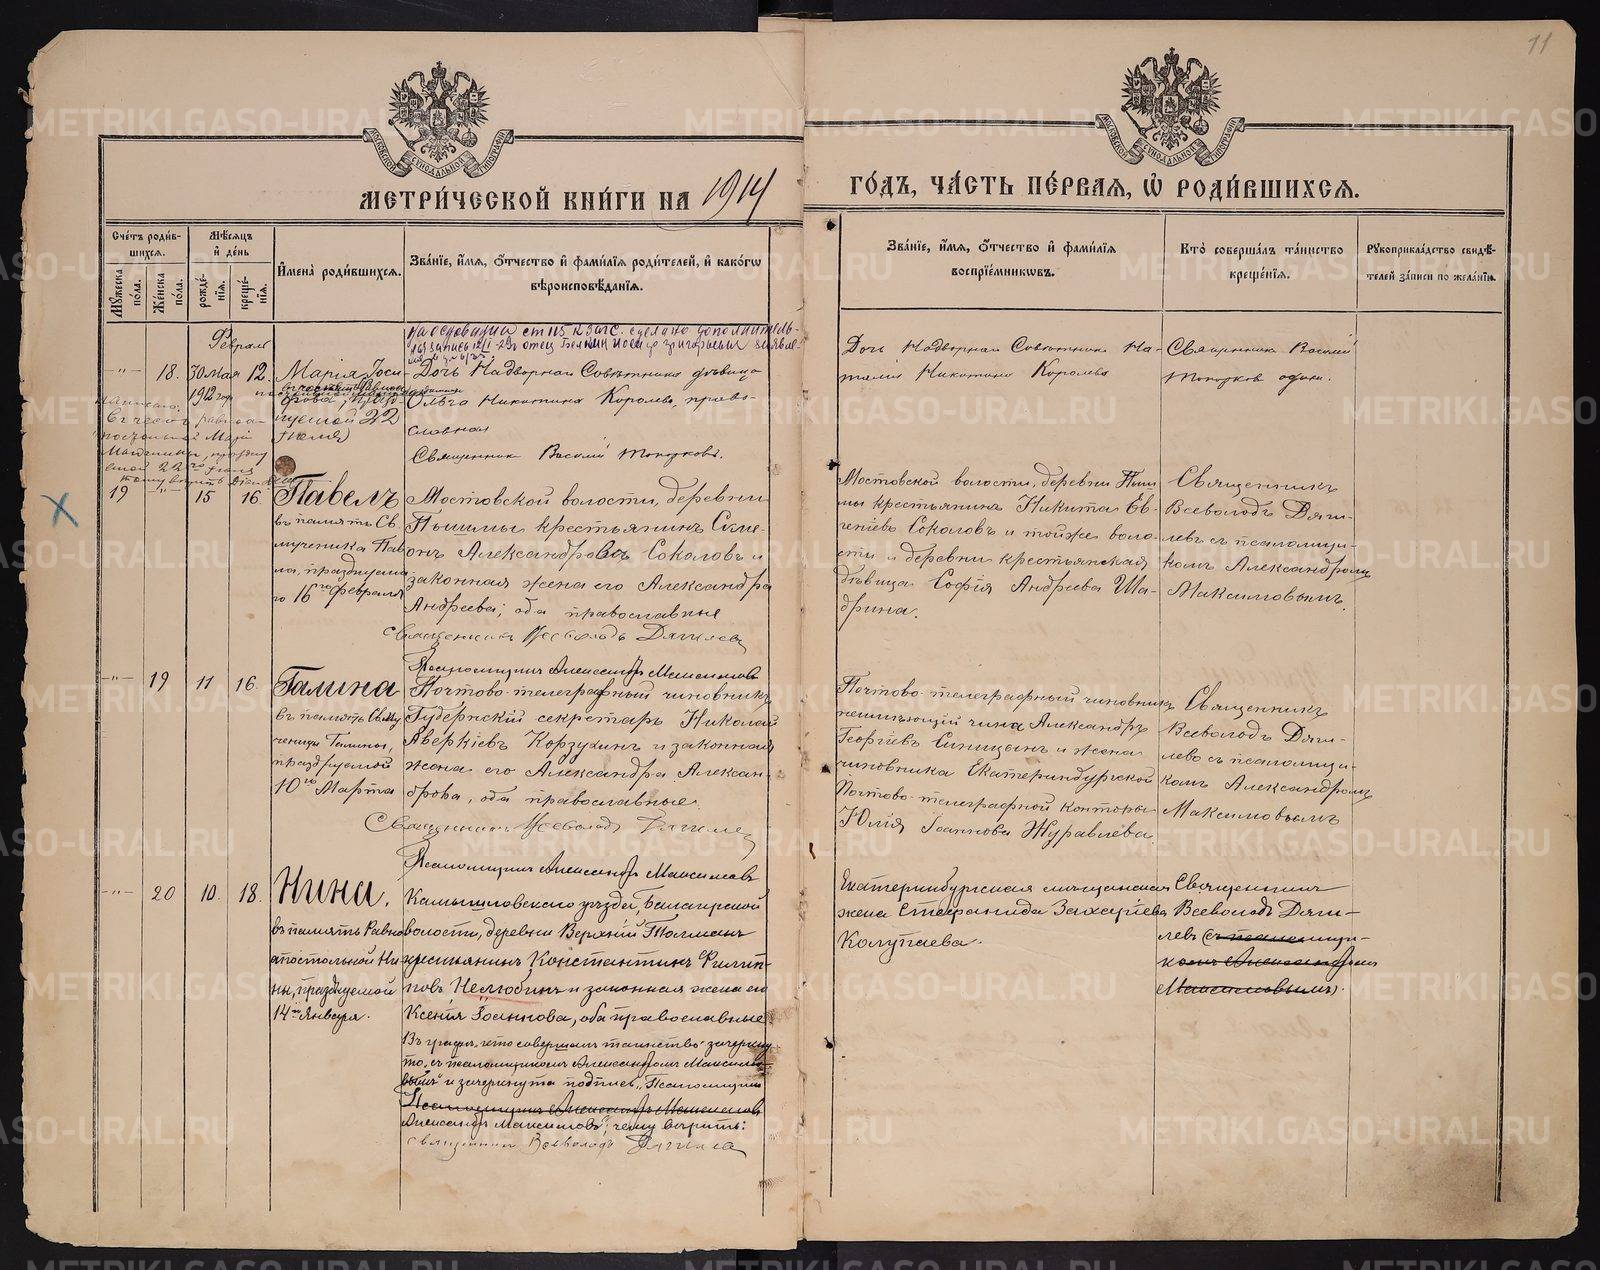 11
МЕТРИ́ЧЕСКОЙ КНИ́ГИ НА 1914
ГО́ДЪ, ЧА́СТЬ ПЕ́РВАЯ, Ѡ҆ РОДИ́ВШИХСЯ.
Сче́тъ роди́в-
шихся.
Мꙋ́жеска по́ла.
Же́нска по́ла.
Мѣ́сяцъ
и҆ де́нь
рожде́-
нїя.
креще́-
нїя.
И҆мена̀ роди́вшихся.
Зва́нїе, и҆́мя, ѻ҆́тчество и҆ фами́лїя роди́телей, и҆ како́гѡ
вѣроисповѣ́данїя.
Зва́нїе, и҆́мя, ѻ҆́тчество и҆ фами́лїя
воспрїе́мникѡвъ.
Кто̀ соверша́лъ та́инство
креще́нїя.
Рꙋкоприкла́дство свидѣ́-
телей за́писи по жела́нїю.
Февраль
18. 30 мая 12.
1912 года
Марія
Дочь Надворнаго Совѣтника дѣвица
Ольга Никитина Королева, право-
славная
Священникъ Василій
Дочь Надворнаго Совѣтника На-
талія Никитина Королева
Священникъ Василій
19 -"- 15 16.
Павелъ
въ память Св.
мученика Пав-
ла, празднуема-
го 16го февраля
Мостовской волости, деревни
Пышмы крестьянинъ Симе-
онъ Александровъ Соколовъ и
законная жена его Александра
Андреева; оба православные
Священникъ Всеволодъ Дягилевъ
Псаломщикъ Александръ Максимовъ
Мостовской волости, деревни Пыш-
мы крестьянинъ Никита Ев-
геніевъ Соколовъ и тойже воло-
сти и деревни крестьянская
дѣвица Софія Андреева Ша-
дрина.
Священникъ
Всеволодъ Дяги-
левъ съ псаломщи-
комъ Александромъ
Максимовымъ.
-"- 19 11 16.
Галина
въ память Св. му-
ченицы Галины,
празднуемой
10го Марта
Почтово-телеграфный чиновникъ
Губернскій секретарь Николай
Аверкіевъ Корзухинъ и законная
жена его Александра Алексан-
дрова, оба православные.
Священникъ Всеволодъ Дягилевъ
Псаломщикъ Александръ Максимовъ
Почтово-телеграфный чиновникъ
неимѣющій чина Александръ
Георгіевъ Синицынъ и жена
чиновника Екатеринбургской
Почтово-телеграфной конторы
Юлія Іоаннова Журавлева.
Священникъ
Всеволодъ Дяги-
левъ съ псаломщи-
комъ Александромъ
Максимовымъ
-"- 20 10. 18.
Нина,
въ память Равно-
апостольной Ни-
ны, празднуемой
14го Января.
Камышловскаго уѣзда, Балаирской
волости, деревни Верхній
крестьянинъ Константинъ Филип-
повъ Нелюбинъ и законная жена его
Ксенія Іоаннова, оба православные.
Въ графѣ, кто совершалъ таинство зачеркну-
то „съ псаломщикомъ Александромъ Максимо-
вымъ" и зачеркнута подпись „Псаломщикъ
Псаломщикъ Александръ Максимовъ
Александръ Максимовъ", чему вѣрить:
священникъ Всеволодъ Дягилевъ
Екатеринбургская мѣщанская
жена Стефанида Захаріева
Колупаева.
Священникъ
Всеволодъ Дяги-
левъ (съ псаломщи-
комъ Александромъ
Максимовымъ).